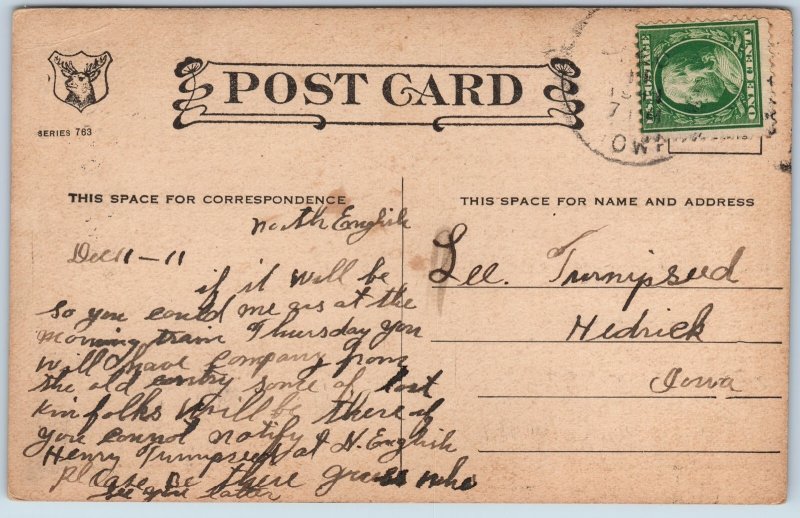 POST CARD
SERIES 763
U.S. POSTAGE
ONE CENT
IOWA
THIS SPACE FOR CORRESPONDENCE
THIS SPACE FOR NAME AND ADDRESS
North English
Dec 11-11
if it will be
So you could me us at the
morning train Thursday you
will have company from
the old contry some of lost
kin folks Will be there if
you connot notify
Henry Turnipseed at N. English
Please be there guess who
see you latter
Lee. Turnipseed
Hedrick
Iowa